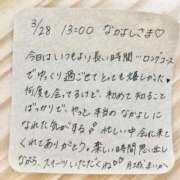 3/28 13:00 なかよしさま♡
今日はいつもより長い時間ロングコース
でゆっくり過ごせてとっても嬉しかった
何度も会ってるけど、初めて知ること
ばっかりで、やっと本当のなかよしに
なれた気がする 忙しい中会いに来て
くれてありがとう 楽しい時間思い出し
ながら、スイーツいただくね